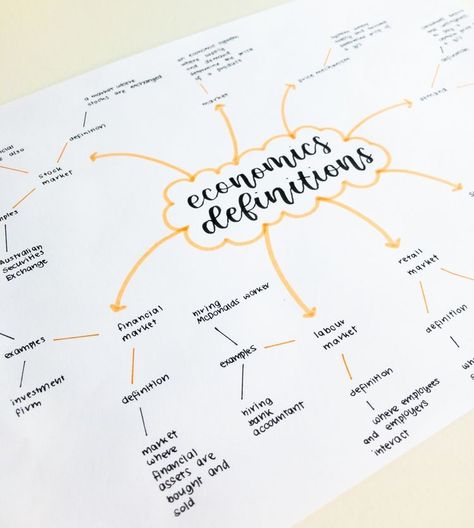 economics
definitions
a market where
stocks are exchanged
definition
stock
market
also
Australian
Securities
Exchange
market
an economic system
where supply
and demand
price mechanism
demand
financial
market
examples
investment
firm
definition
market
where
financial
assets are
bought and
sold
labour
market
examples
hiring
McDonalds worker
hiring
bank
accountant
definition
where employees
and employers
interact
retail
market
definition